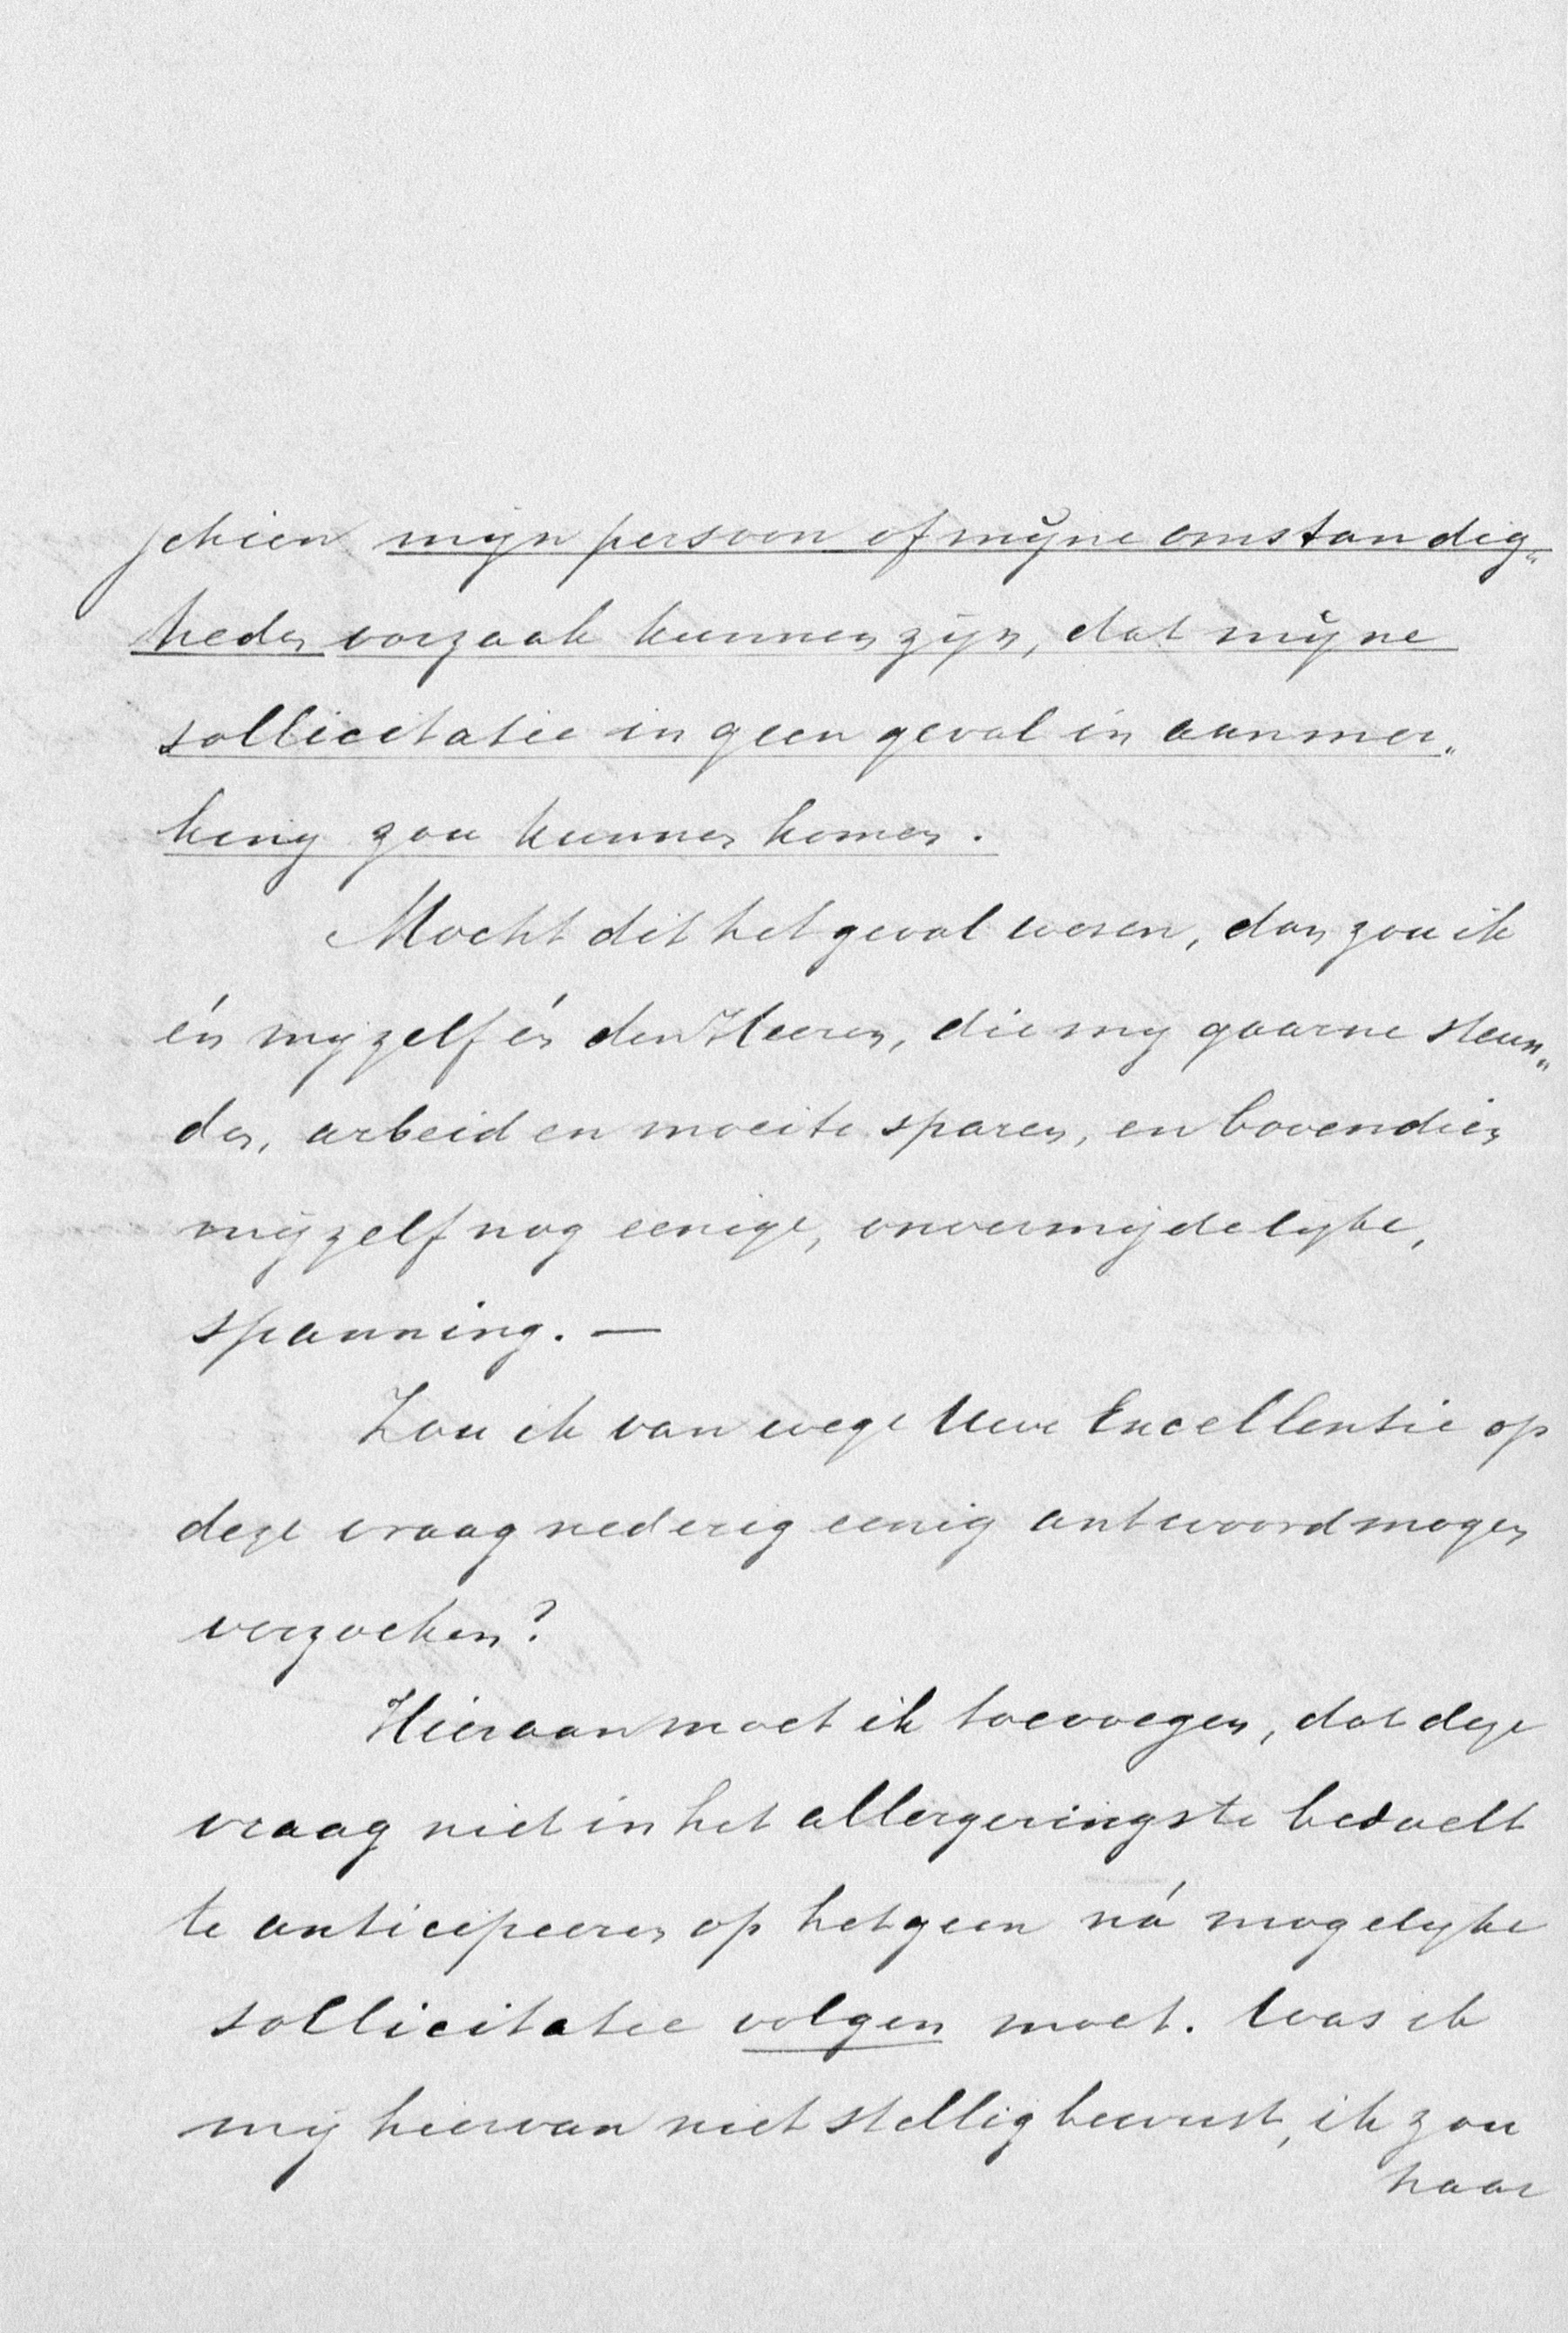 schien mijn persoon of mijne omstandig„
heden oorzaak kunnen zijn, dat mijne
sollicitatie in geen geval in aanmer„
king zou kunnen komen.
Mocht dit het geval wesen, dan zou ik
én mijzelf én den Heeren, die mij gaarne steun„
den, arbeid en moeite sparen, en bovendien
mijzelf nog eenige, onvermijdelijke,
spanning. —
Zou ik van wege Uwe Excellentie op
deze vraag nederig eenig antwoord mogen
verzoeken?
Hieraan moet ik toevoegen, dat deze
vraag niet in het allergeringste bedoelt
te anticipeeren op hetgeen ná mogelijke
sollicitatie volgen moet. Was ik
mij hiervan niet stellig bewust, ik zou
haar